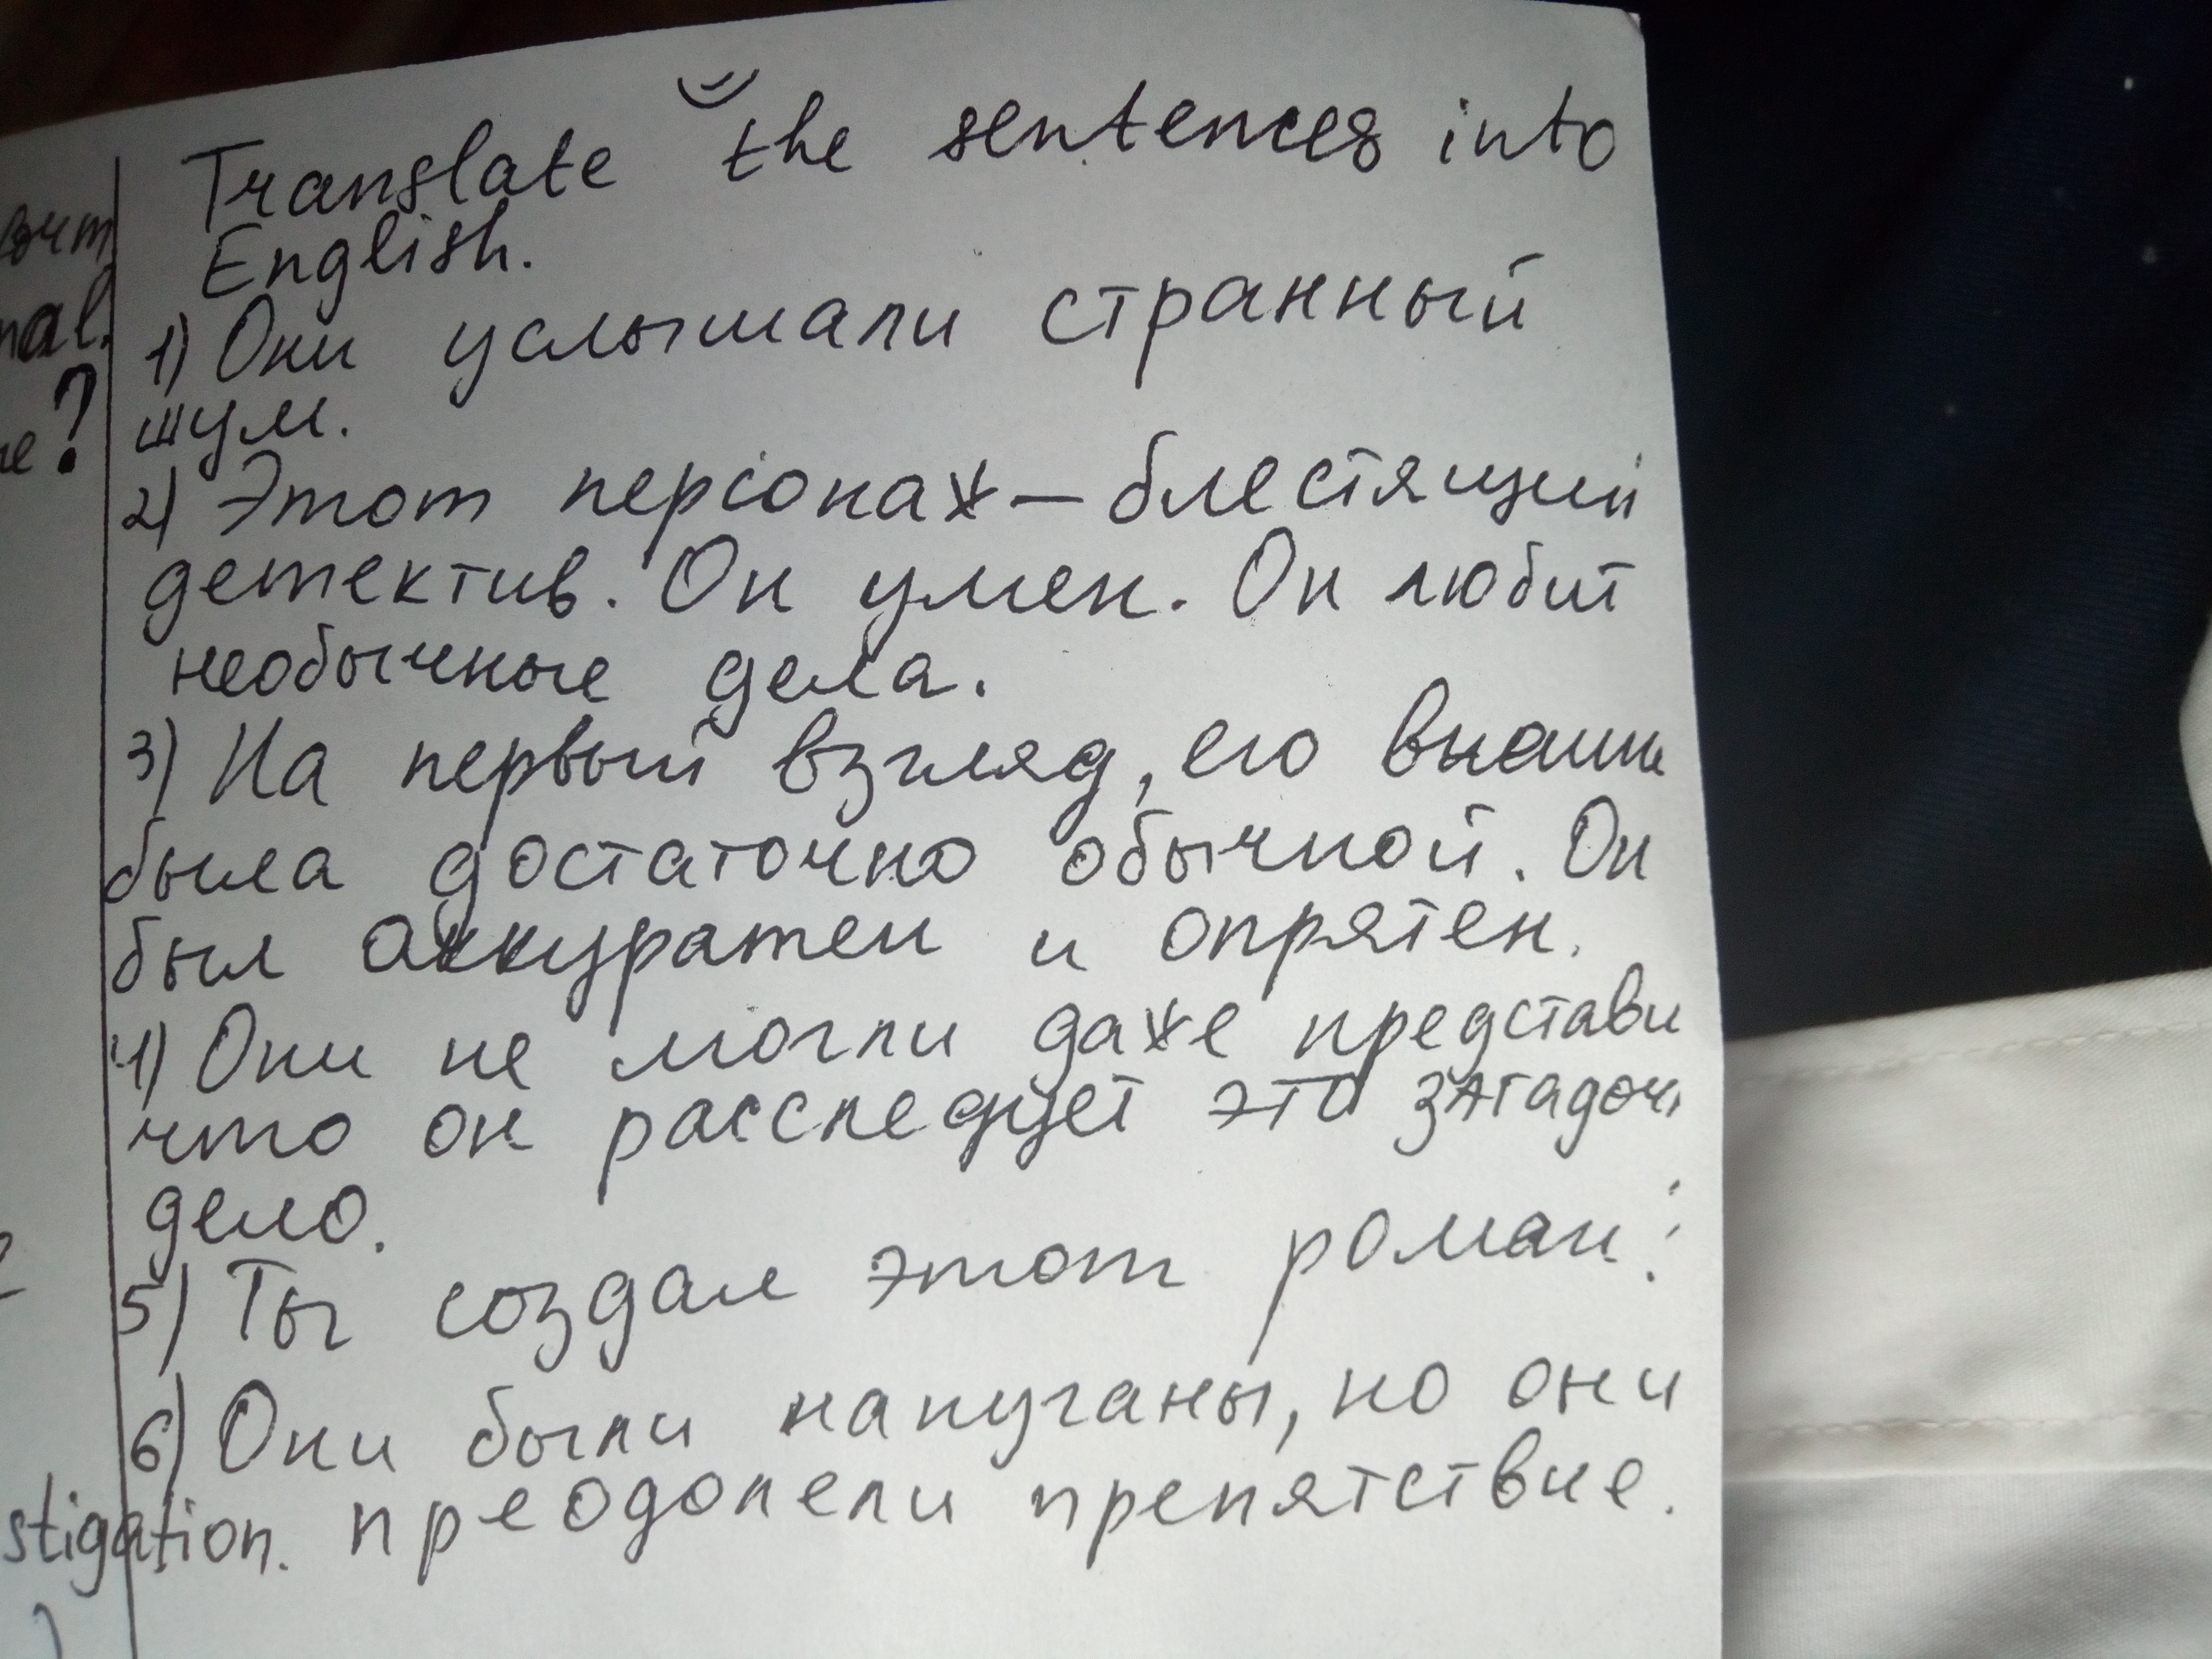 Translate the sentences into
English.
1) Они услышали странный
шум.
2) Этот персонаж — блестящий
детектив. Он умен. Он любит
необычные дела.
3) На первый взгляд, его внешн
была достаточно обычной. Он
был аккуратен и опрятен.
4) Они не могли даже представи
что он расследует это загадочн
дело.
5) Ты создал этот роман?
6) Они были напуганы, но они
преодолели препятствие.
nal.
?
stigation.